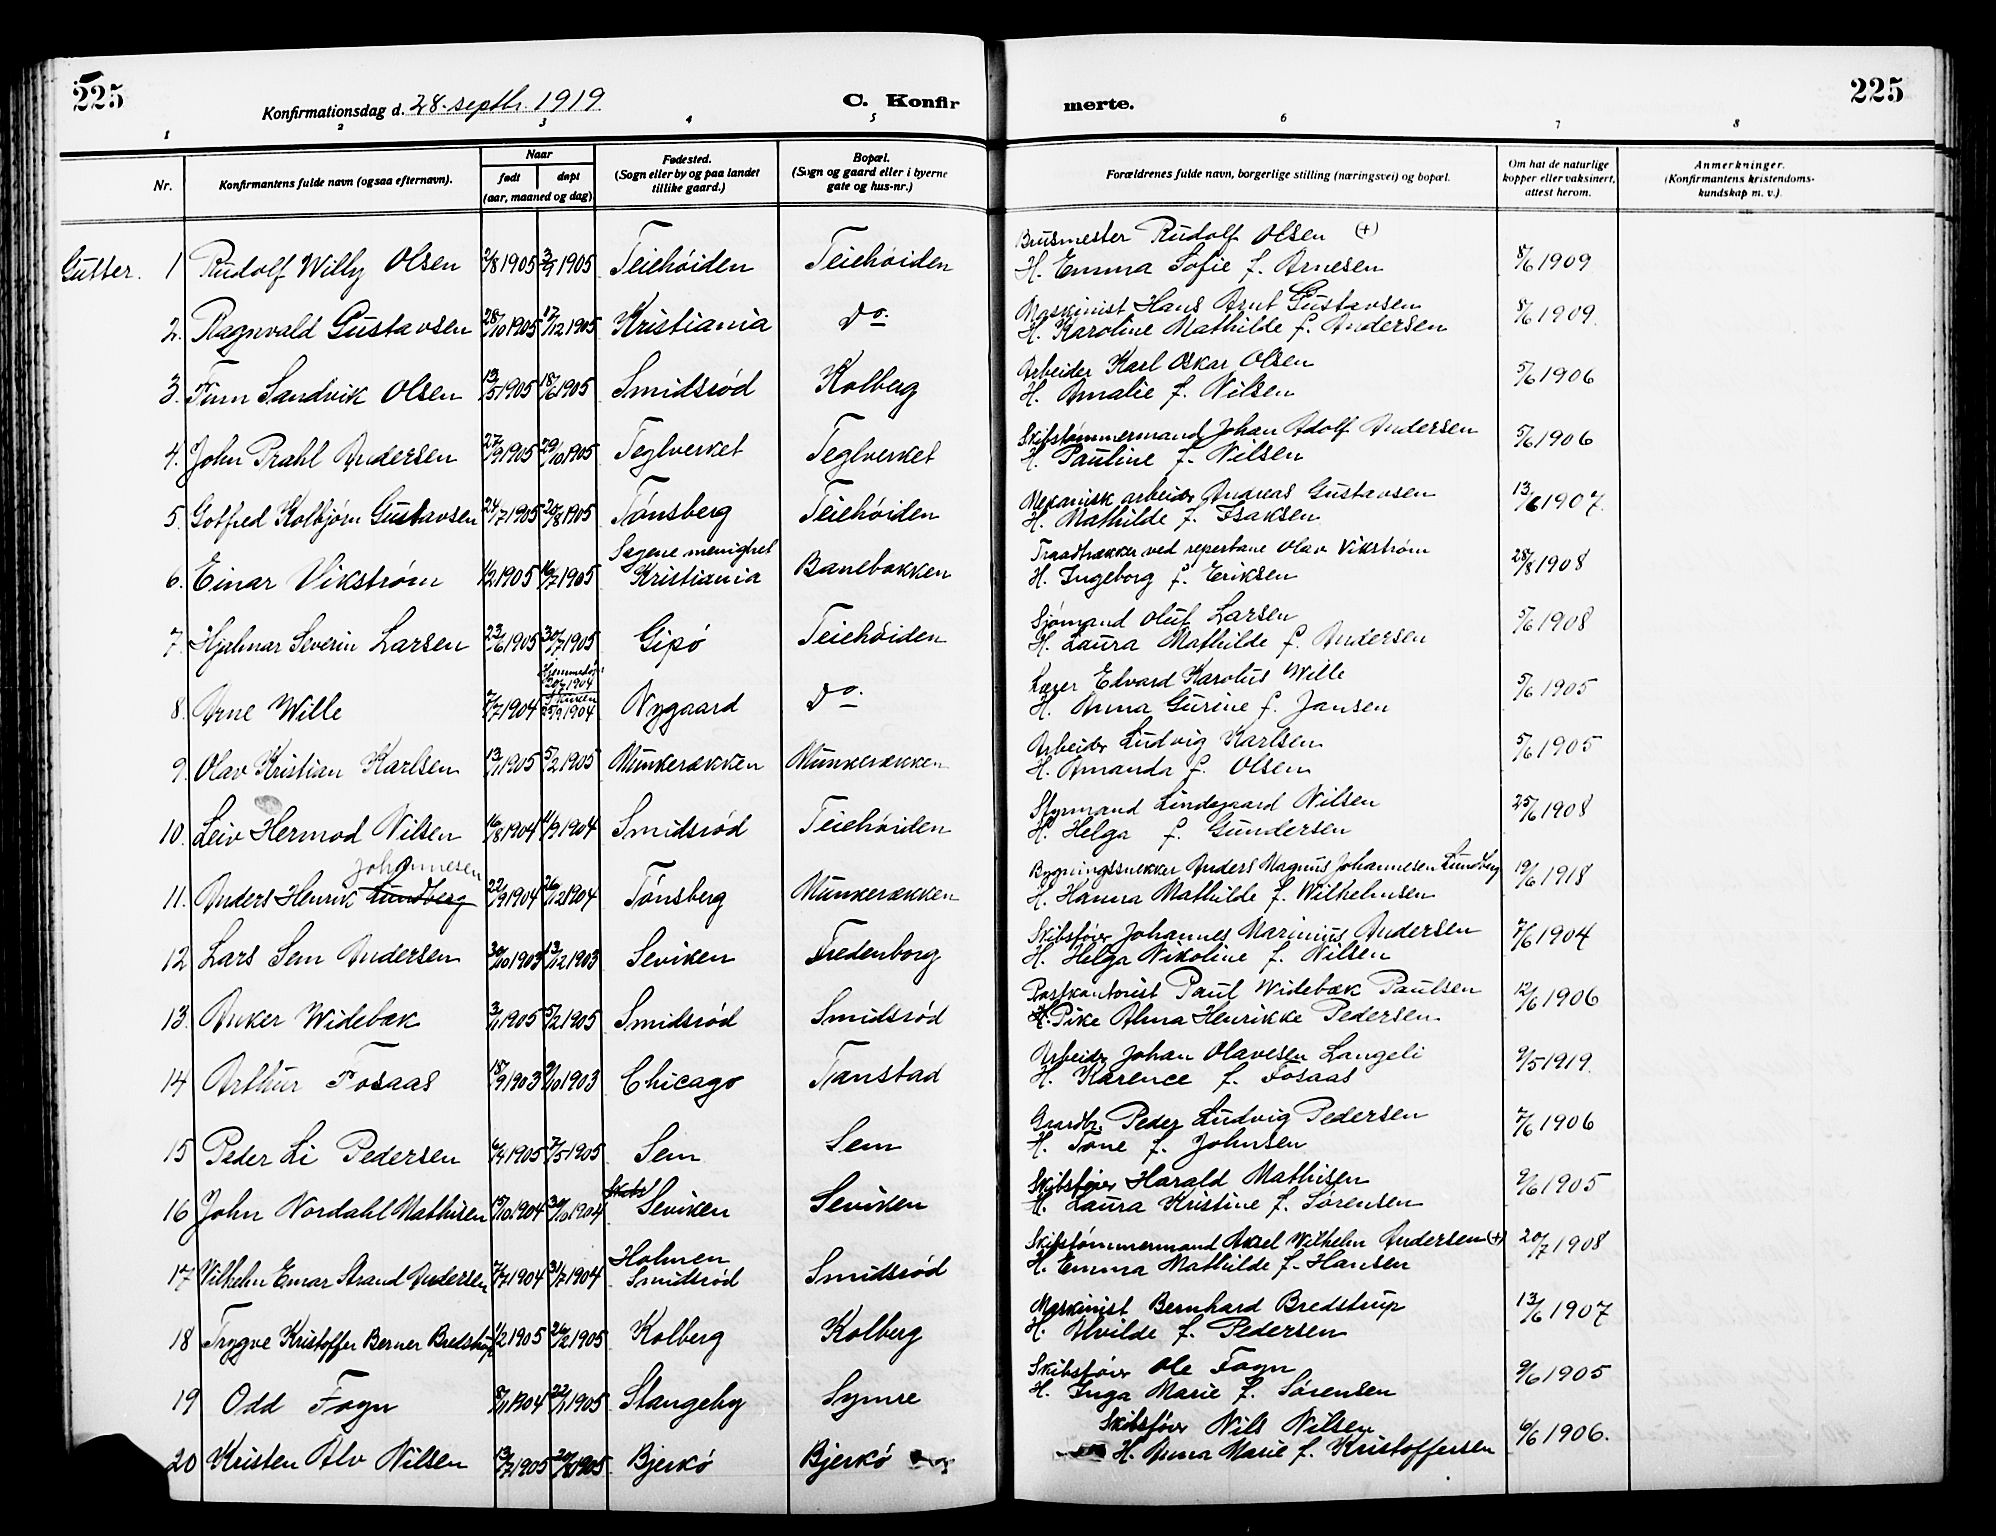 225
Konfirmationsdag d. 28. septbr. 1919
C. Konfir
merte.
225
1 2 3 4 5 6 7 8
Nr.
Konfirmantens fulde navn (ogsaa efternavn).
Naar
født døpt
(aar, maaned og dag)
Fødested.
(Sogn eller by og paa landet
tillike gaard.)
Bopæl.
(Sogn og gaard eller i byerne
gate og hus-nr.)
Forældrenes fulde navn, borgerlige stilling (næringsvei) og bopæl.
Om hat de naturlige
kopper eller vaksinert,
attest herom.
Anmerkninger.
(Konfirmantens kristendoms-
kundskap m. v.)
Gutter. 1 Rudolf Willy Olsen 2/8 1905 3/9 1905 Teiehøiden Teiehøiden
Brusmester Rudolf Olsen (+)
H. Emma Sofie f. Arnesen 8/6 1909
2. Ragnvald Gustavsen 28/10 1905 17/12 1905 Kristiania Do.
Maskinist Hans Arnt Gustavsen
H. Karoline Mathilde f. Andersen 8/6 1909.
3. Finn Sandvik Olsen 13/5 1905 18/6 1905 Smidsrød Kolberg
Arbeider Karl Oskar Olsen
H. Amalie f. Nilsen 5/6 1906
4. John Prahl Andersen 27/9 1905 29/10 1905 Teglverket Teglverket
Skibstømmermand Johan Adolf Andersen
H. Pauline f. Nilsen 5/6 1906
5. Gotfred Kolbjørn Gustavsen 24/7 1905 20/8 1905 Tønsberg Teiehøiden
Mekanisk arbeider Andreas Gustavsen
H. Mathilde f. Isaksen 13/6 1907.
Sagene menighet
6. Einar Vikstrøm 1/2 1905 16/7 1905 Kristiania Banebakken
Traadtrækker ved reperbane Olav Vikstrøm
H. Ingeborg f. Eriksen 28/8 1908
7. Hjalmar Severin Larsen 23/6 1905 30/7 1905 Gipø Teiehøiden
Sjømand Oluf Larsen
H. Laura Mathilde f. Andersen 5/6 1908
Hjemmedøpt
20/7 1904
i kirken
8. Arne Wille 7/7 1904 25/9 1904 Nygaard Do.
Læger Edvard Karolus Wille
H. Anna Gurine f. Jansen 5/6 1905
9. Olav Kristian Karlsen 13/1 1905 5/2 1905 Munkerækken Munkerækken
Arbeider Ludvig Karlsen
H. Amanda f. Olsen 5/6 1905
10. Leiv Hermod Nilsen 16/8 1904 11/9 1904 Smidsrød Teiehøiden
Styrmand Lindegaard Nilsen
H. Helga f. Gundersen 25/6 1908
Johannesen
11. Anders Henrik Lundberg 22/9 1904 26/12 1904 Tønsberg Munkerækken
Bygningssnekker Anders Magnus Johannesen Lundberg
H. Hanna Mathilde f. Wilhelmsen 19/6 1918
12 Lars Sem Andersen 30/10 1903 13/12 1903 Seviken Fredenborg
Skibsfører Johannes Marinius Andersen
H. Helga Nikoline f. Nilsen 7/6 1904
13. Anker Widebæk 3/1 1905 5/2 1905 Smidsrød Smidsrød
Postkontorist Paul Widebæk Paulsen
Pike Alma Henrikke Pedersen 12/6 1906
14 Arthur Fosaas 18/9 1903 9/10 1903 Chicago Tanstad
Arbeider Johan Olavesen Langeli
H. Karence f. Fosaas 9/5 1919.
15 Peder Li Pedersen 4/4 1905 7/5 1905 Sem Sem
Gaardbr. Peder Ludvig Pedersen
H. Tone f. Johnsen 7/6 1906
16 John Nordahl Mathisen 15/10 1904 30/10 1904 Seviken Seviken
Skibsfører Harald Mathisen
H. Laura Kristine f. Sørensen 9/6 1905
Holmen
17 Vilhelm Einar Strand Andersen 7/7 1904 31/7 1904 Smidsrød Smidsrød
Skibstømmermand Aksel Wilhelm Andersen (+)
H. Emma Mathilde f. Hansen 20/7 1908
18 Trygve Kristoffer Berner Bredstrup 1/2 1905 26/2 1905 Kolberg Kolberg
Maskinist Bernhard Bredstrup
H. Alvilde f. Pedersen 13/6 1907
19 Odd Fogn 8/11 1904 22/1 1905 Stangeby Symre
Skibsfører Ole Fogn
H. Inga Marie f. Sørensen 9/6 1905
20 Kristen Alv Nilsen 13/7 1905 1905 Bjerkø Bjerkø
Skibsfører Nils Nilsen
H. Anna Marie f. Kristoffersen 6/6 1906.